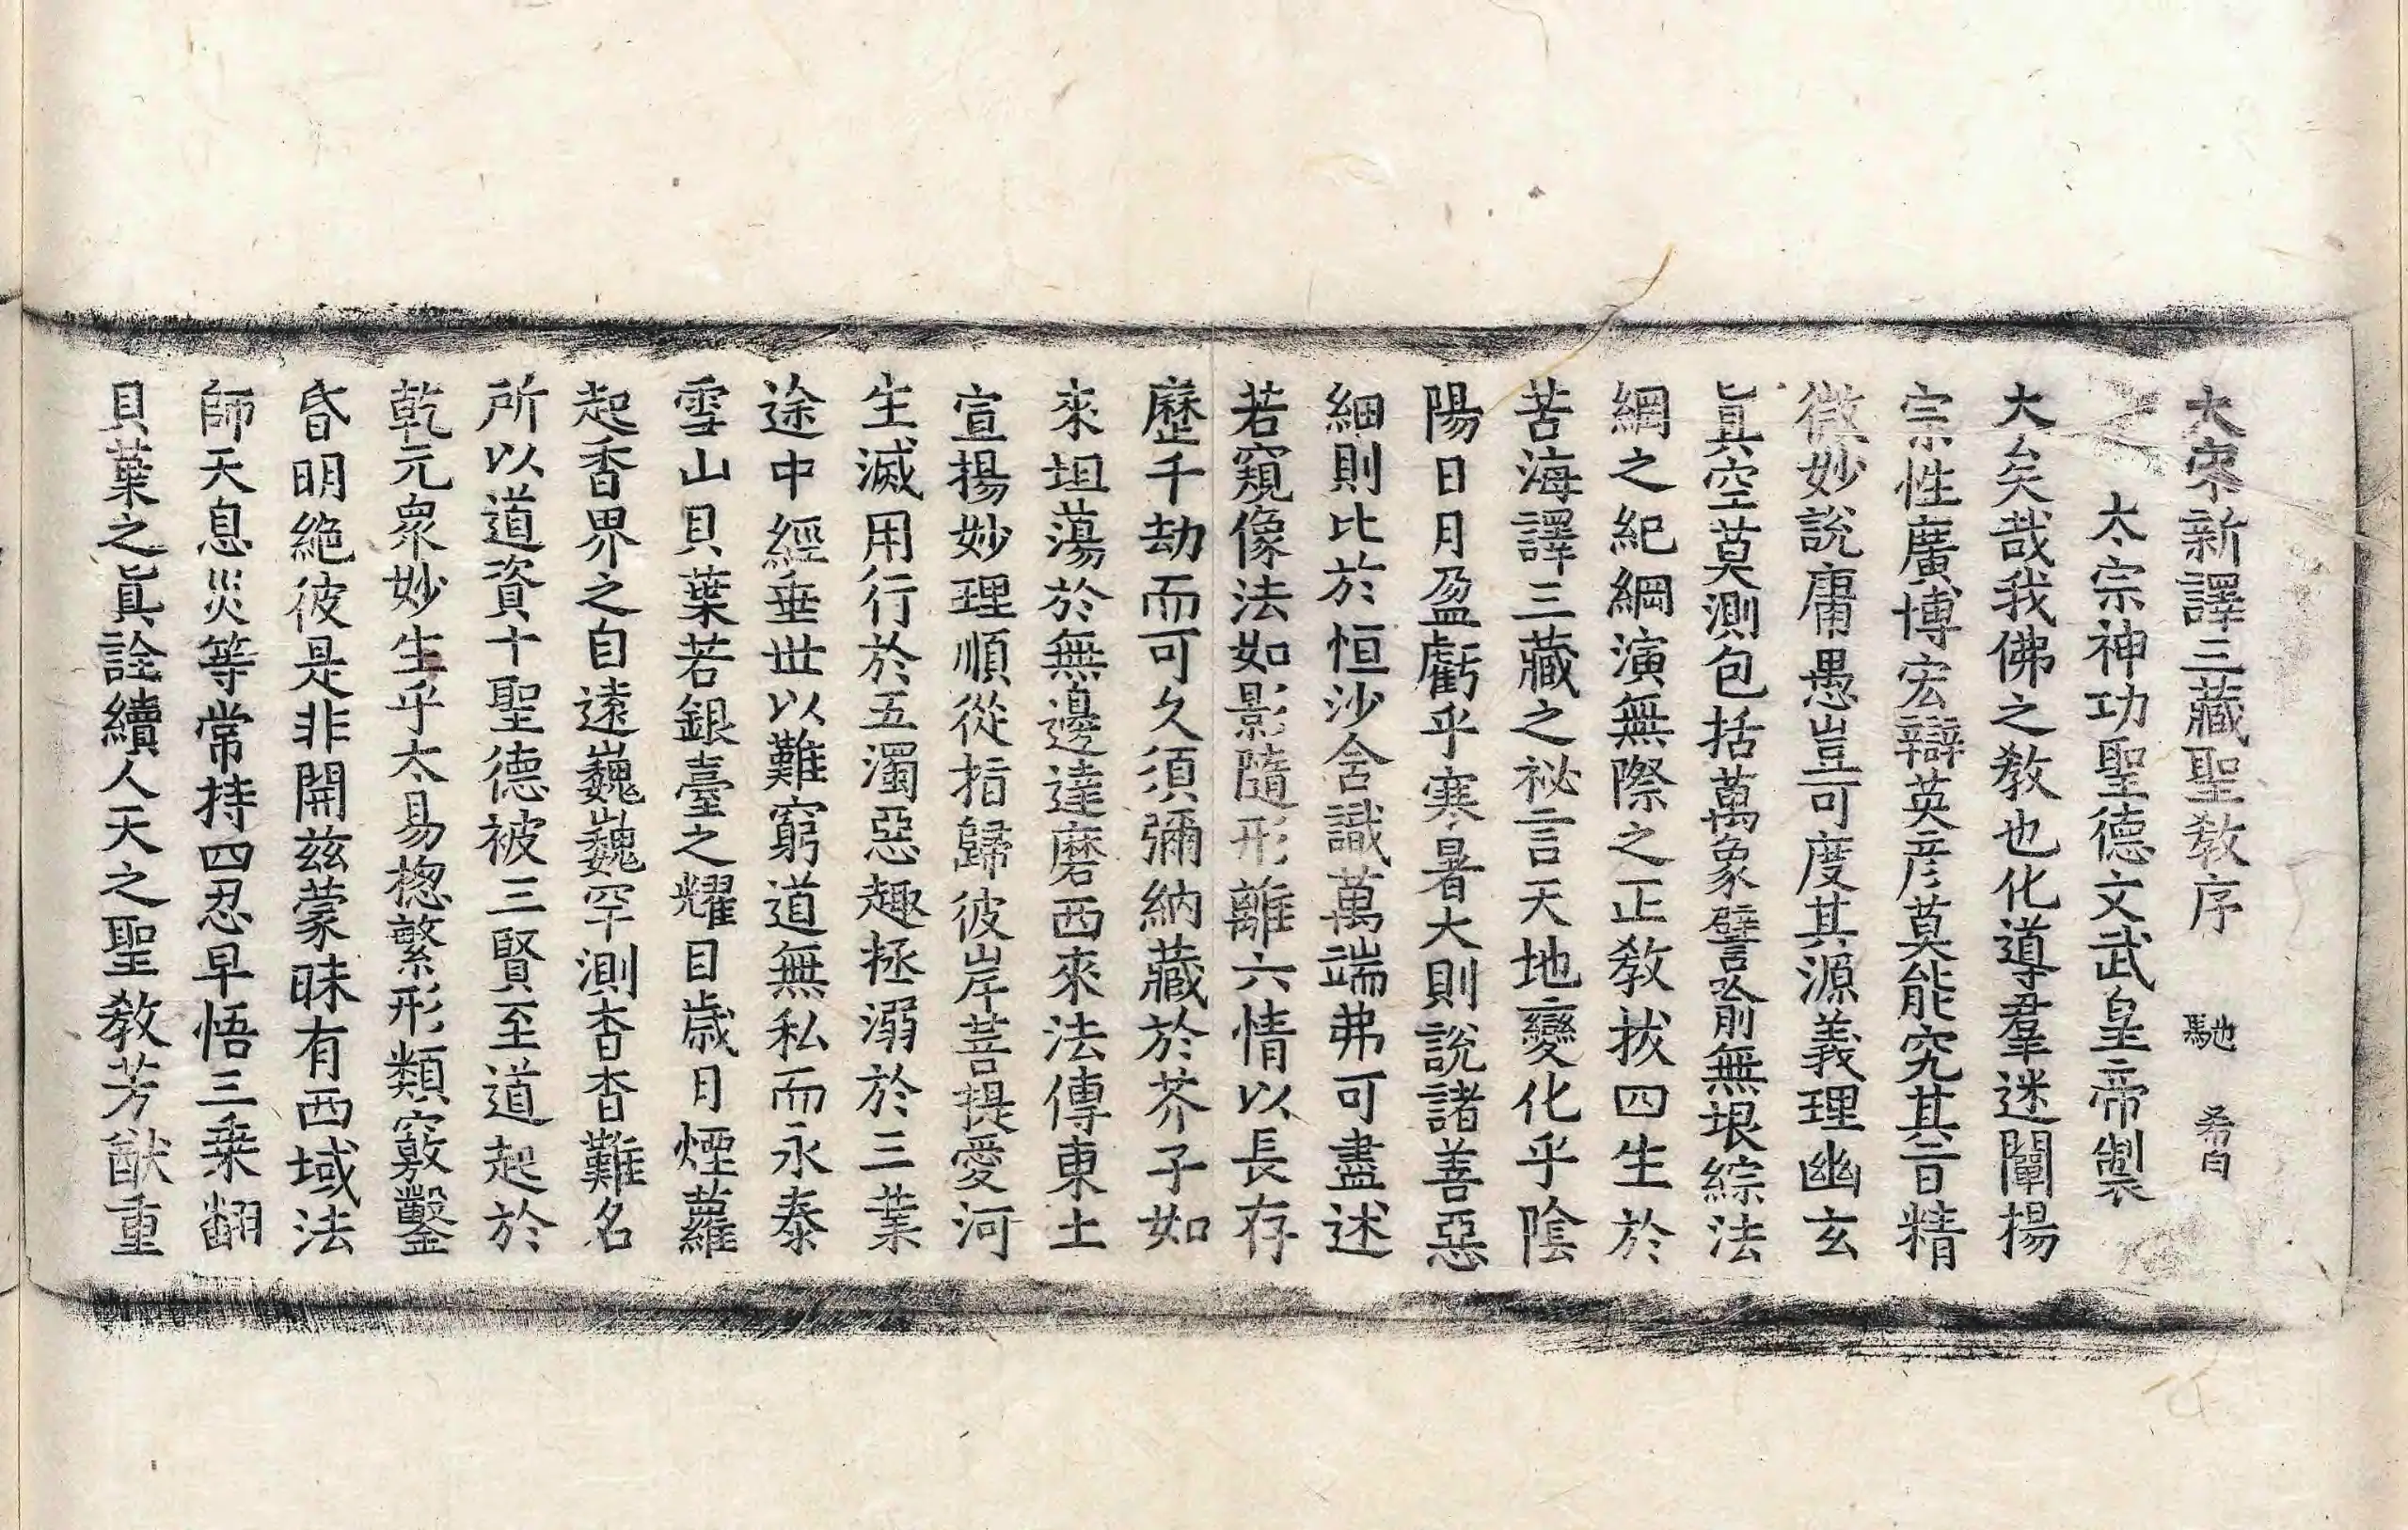 大宋新譯三藏聖教序 馳 希白
之 太宗神功聖德文武皇帝製
大矣哉我佛之教也化導羣迷闡揚
宗性廣博宏辯英彦莫能究其旨精
微妙說庸愚豈可度其源義理幽玄
眞空莫測包括萬象譬喻無垠綜法
綱之紀綱演無際之正教拔四生於
苦海譯三藏之祕言天地變化乎陰
陽日月盈虧乎寒暑大則說諸善惡
細則比於恒沙含識萬端弗可盡述
若窺像法如影隨形離六情以長存
歷千劫而可久須彌納藏於芥子如
來坦蕩於無邊達磨西來法傳東土
宣揚妙理順從指歸彼岸菩提愛河
生滅用行於五濁惡趣拯溺於三業
途中經垂世以難窮道無私而永泰
雪山貝葉若銀臺之耀目歲月煙蘿
起香界之自遠巍巍罕測杳杳難名
所以道資十聖德被三賢至道起於
乾元衆妙生乎太易揔繁形類竅鑿
昏明絶彼是非開兹蒙昧有西域法
師天息災等常持四忍早悟三乗翻
貝葉之眞詮續人天之聖教芳猷重